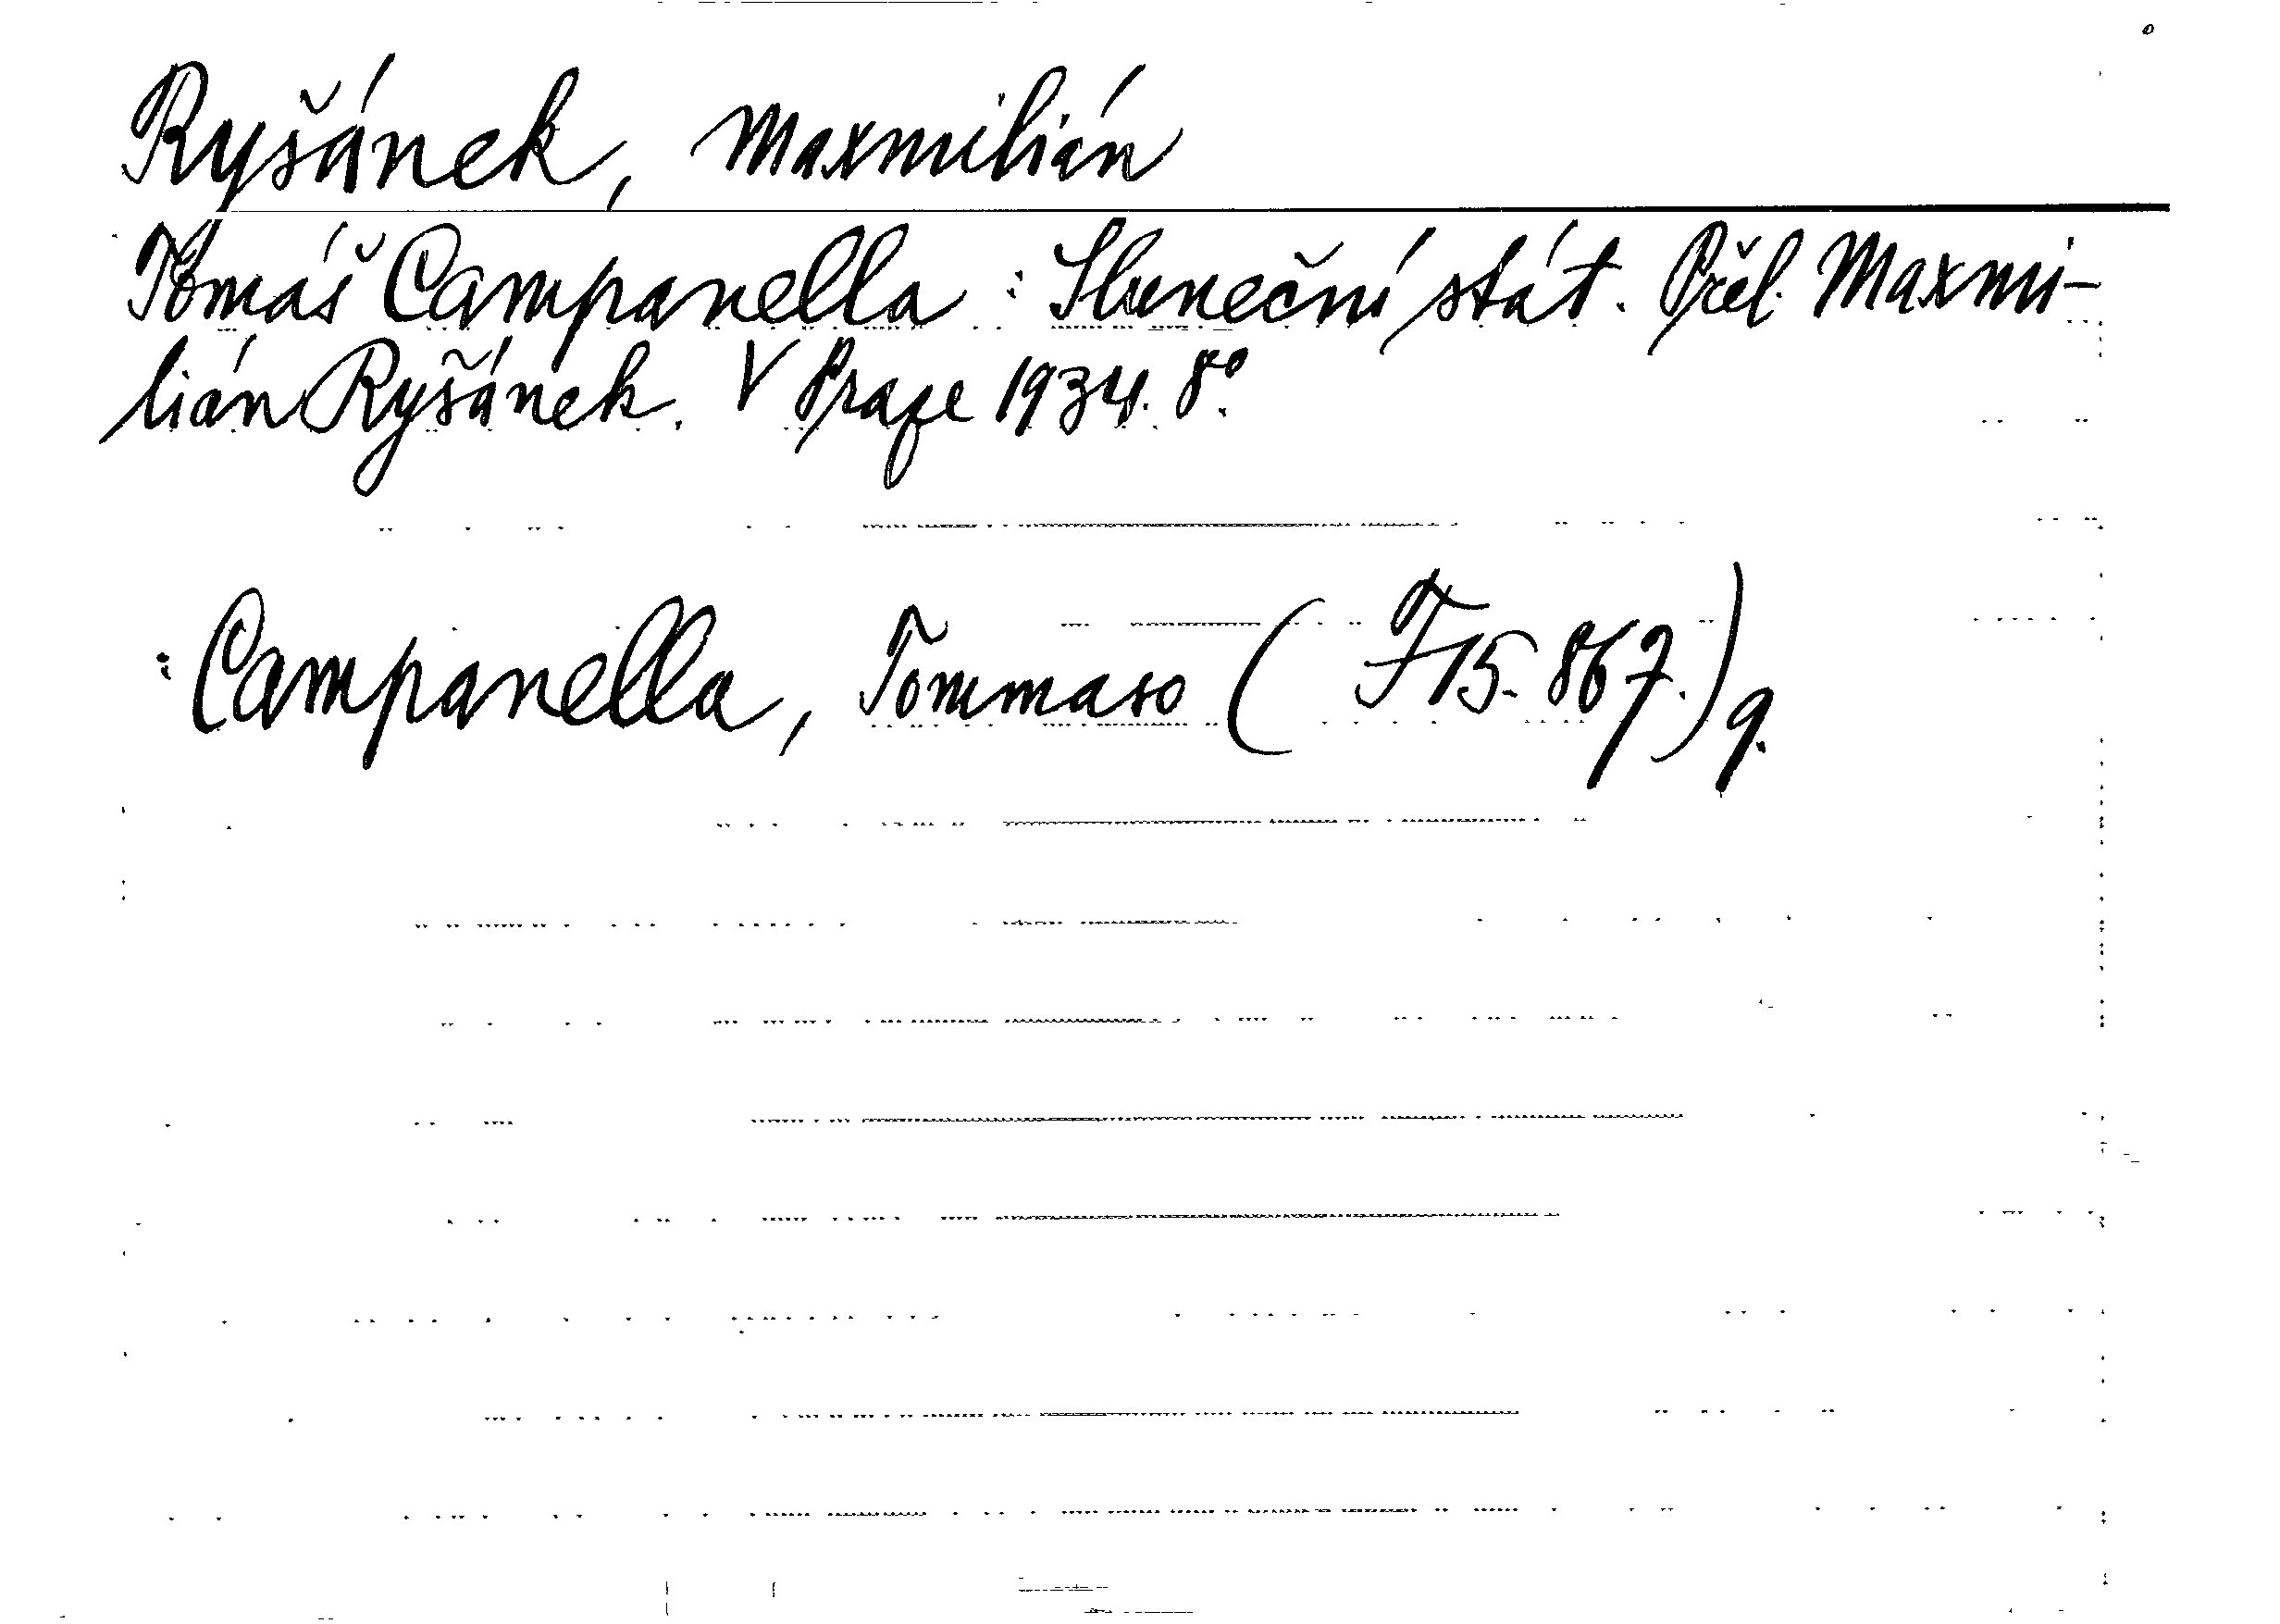 Ryšánek, Maxmilián
Tomáš Campanella : Sluneční stát. Přel. Maxmi-
lián Ryšánek. V Praze 1934. 8°.
: Campanella, Tommaso ( F 15. 867.) q.